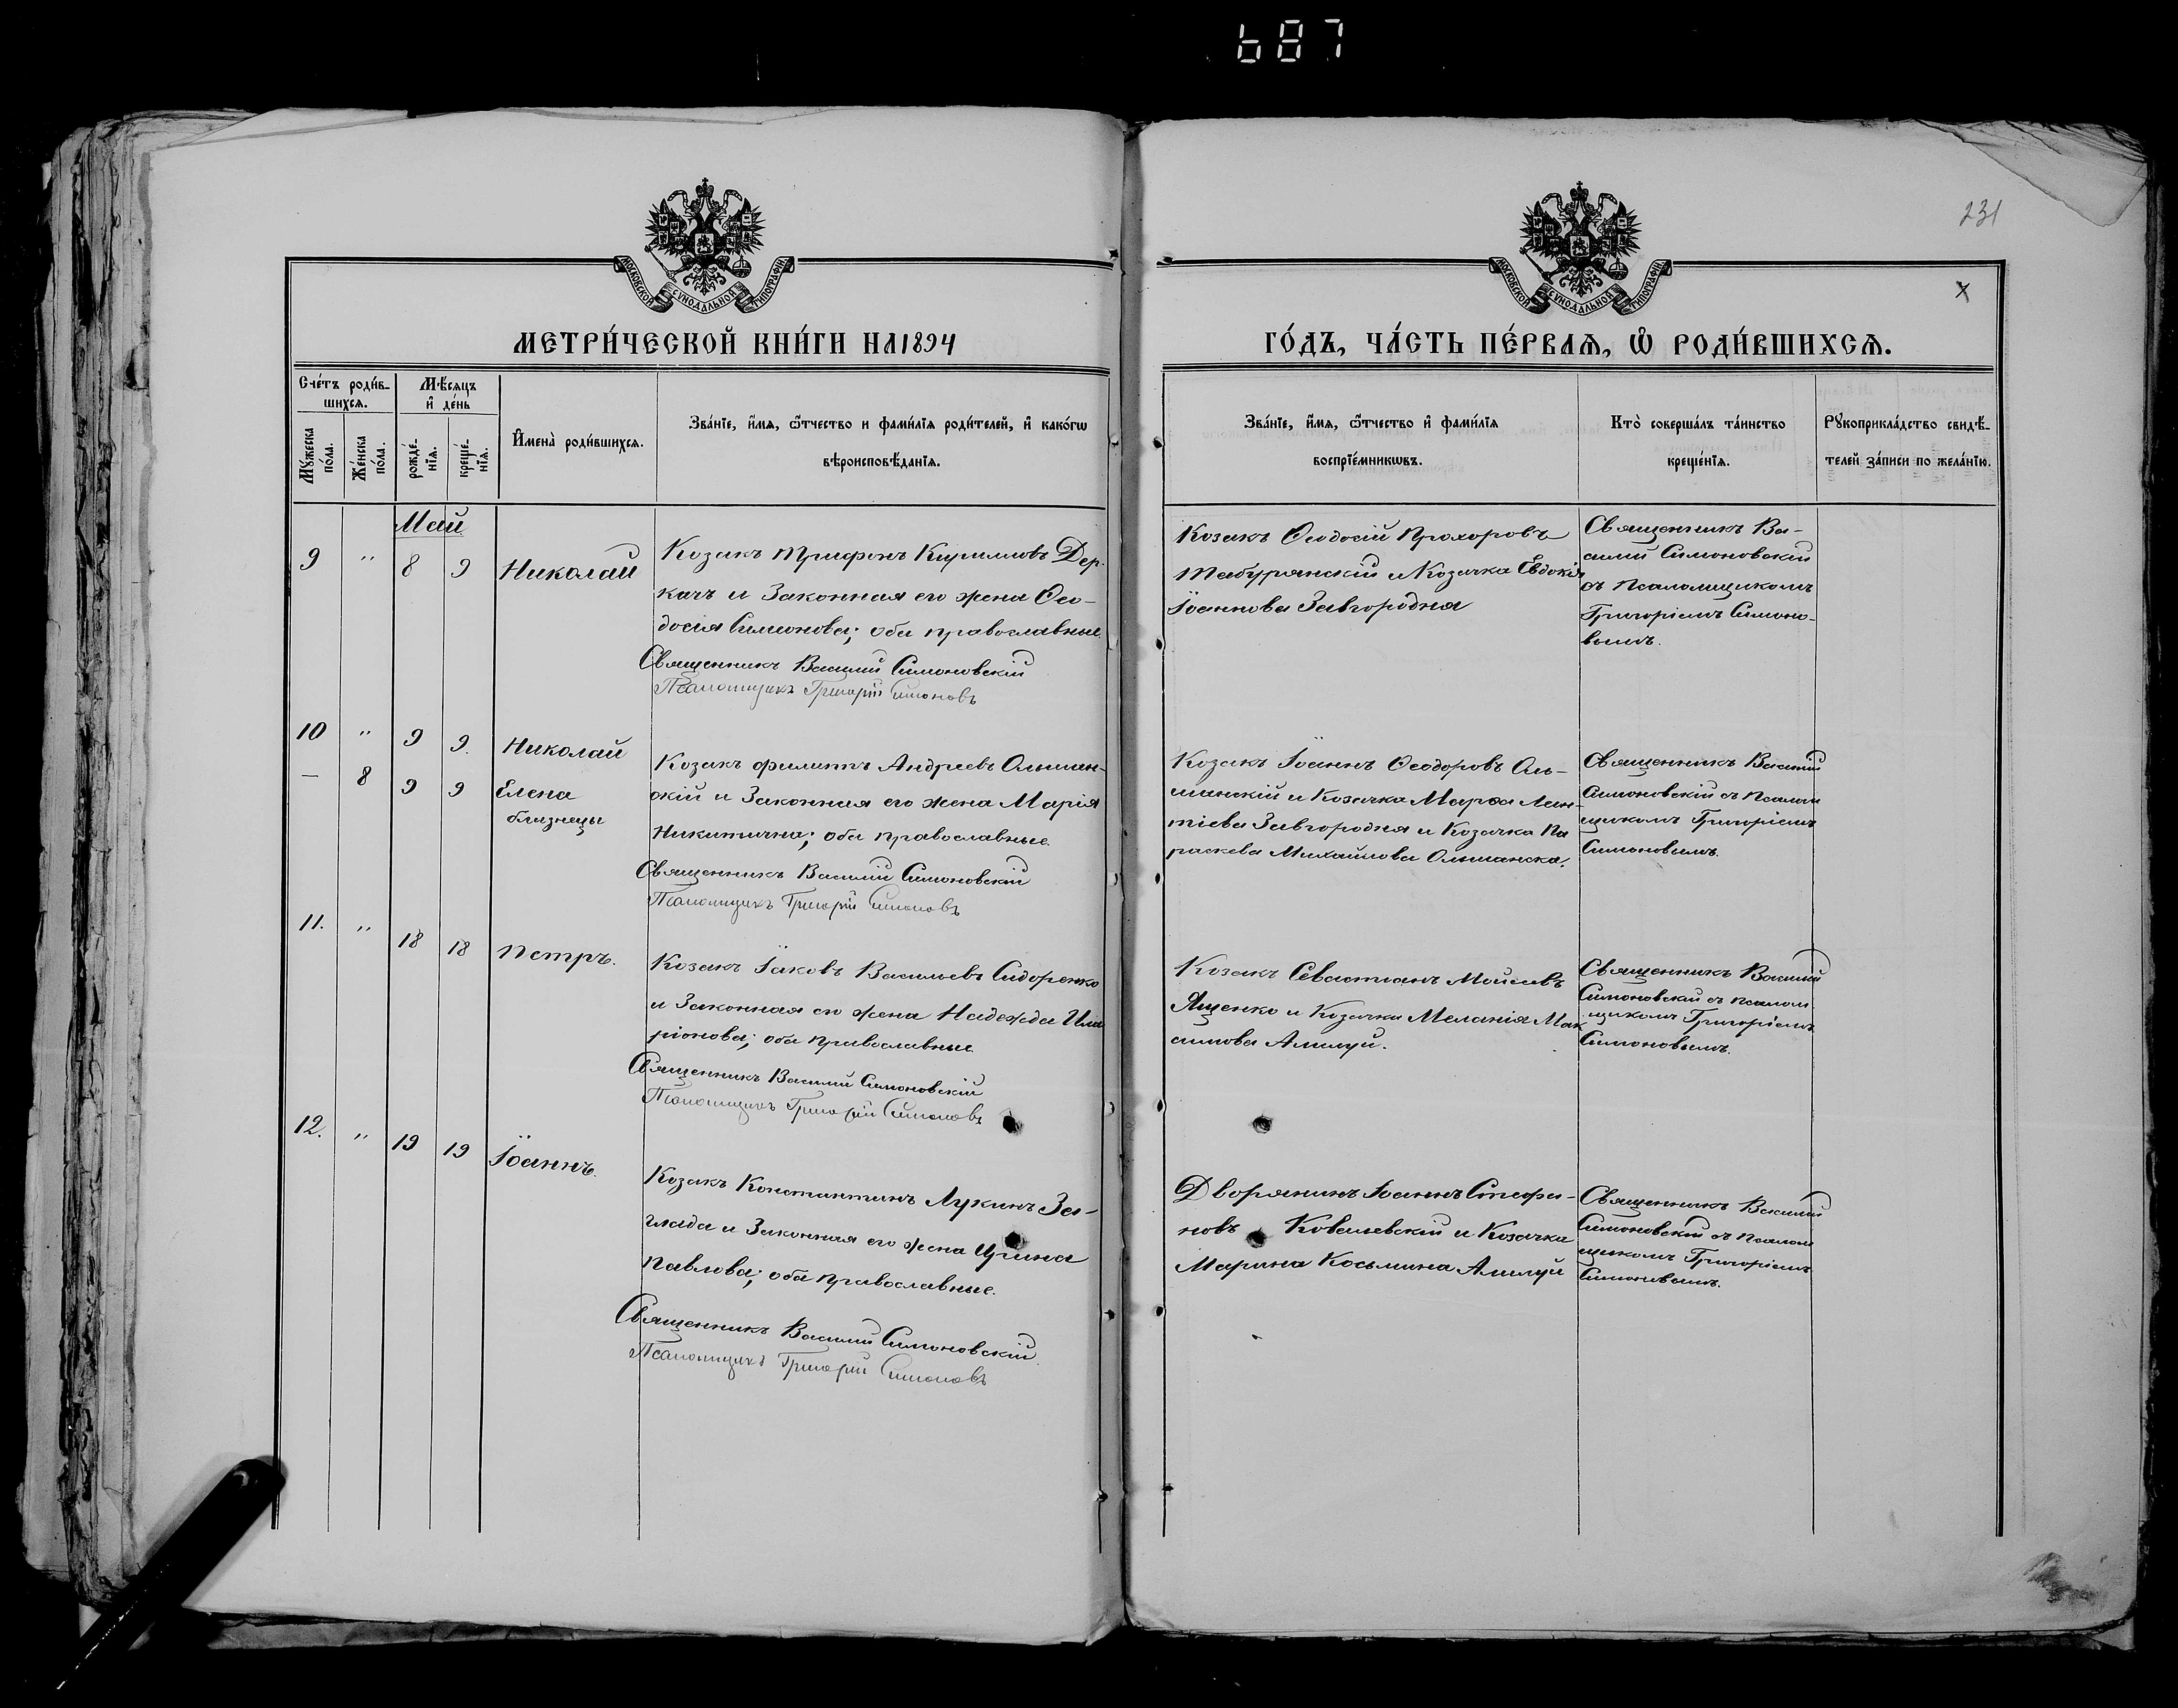 687
231
МОСКОВСКОЙ СѴНОДАЛЬНОЙ ТИПОГРАФІИ
МОСКОВСКОЙ СѴНОДАЛЬНОЙ ТИПОГРАФІИ
х
МЕТРИ́ЧЕСКОЙ КНИ́ГИ НА 1894
ГО́ДЪ, ЧА́СТЬ ПЕ́РВАѦ, Ѡ҆ РОДИ́ВШИХСѦ.
Сче́тъ роди́в-
шихсѧ.
Мѣ́сѧцъ
и҆ де́нь
Мꙋ́жеска
по́ла.
Же́нска
по́ла.
рожде́-
нїѧ.
креще́-
нїѧ.
И҆мена̀ роди́вшихсѧ.
Зва́нїе, и҆́мѧ, ѻ҆́тчество и фами́лїѧ роди́телей, и҆ како́гѡ
вѣроисповѣ́данїѧ.
Зва́нїе, и҆́мѧ, ѻ҆́тчество и҆ фами́лїѧ
воспрїе́мникѡвъ.
Кто̀ соверша́лъ та́инство
креще́нїѧ.
Рꙋкоприкла́дство свидѣ́-
телей за́писи по жела́нїю.
Май
9 " 8 9 Николай
Козакъ Трифонъ Кирилловъ Дер-
качъ и Законная его жена Ѳео-
досія Симонова; оба православные
Священникъ Василій Симоновскій
Псаломщикъ Григорій Симоновъ
Козакъ Ѳеодосій Прохоровъ
Табурянскій и Козачка Евдокія
Іоаннова Завгородня
Священникъ Ва-
силий Симоновскій
съ псаломщикомъ
Григоріемъ Симоно-
вымъ.
10 " 9 9. Николай
— 8 9 9 Елена
близнецы
Козакъ Филиппъ Андреевъ Ольшан-
скій и Законная его жена Марія
Никитична; оба православные.
Священникъ Василій Симоновскій
Псаломщикъ Григорій Симоновъ
Козакъ Іоаннъ Ѳеодоровъ Оль-
шанскій и Козачка Марѳа Лен-
тіева Завгородня и Козачка Па
раскева Михайлова Ольшанска.
Священникъ Василій
Симоновскій съ псалом
щикомъ Григоріемъ
Симоновымъ.
11. " 18 18 Петръ.
Козакъ Іаковъ Васильевъ Сидоренко
и Законная его жена Надежда Ила
ріонова; оба православные
Священникъ Василій Симоновскій
Псаломщикъ Григорій Симоновъ
Козакъ Севастіанъ Мойсеевъ
Ященко и Козачка Меланія Мак
симова
Священникъ Василій
Симоновскій съ псалом
щикомъ Григоріемъ
Симоновымъ.
12. " 19 19 Іоаннъ.
Козакъ Константинъ Лукинъ За-
глада и Законная его жена Ирина
Павлова; оба православные.
Священникъ Василій Симоновскій
Псаломщикъ Григорій Симоновъ
Дворянинъ Іоаннъ Стефа-
новъ Ковалевскій и Козачка
Марина Косьмина
Священникъ Василій
Симоновскій съ псалом
щикомъ Григоріемъ
Симоновымъ.